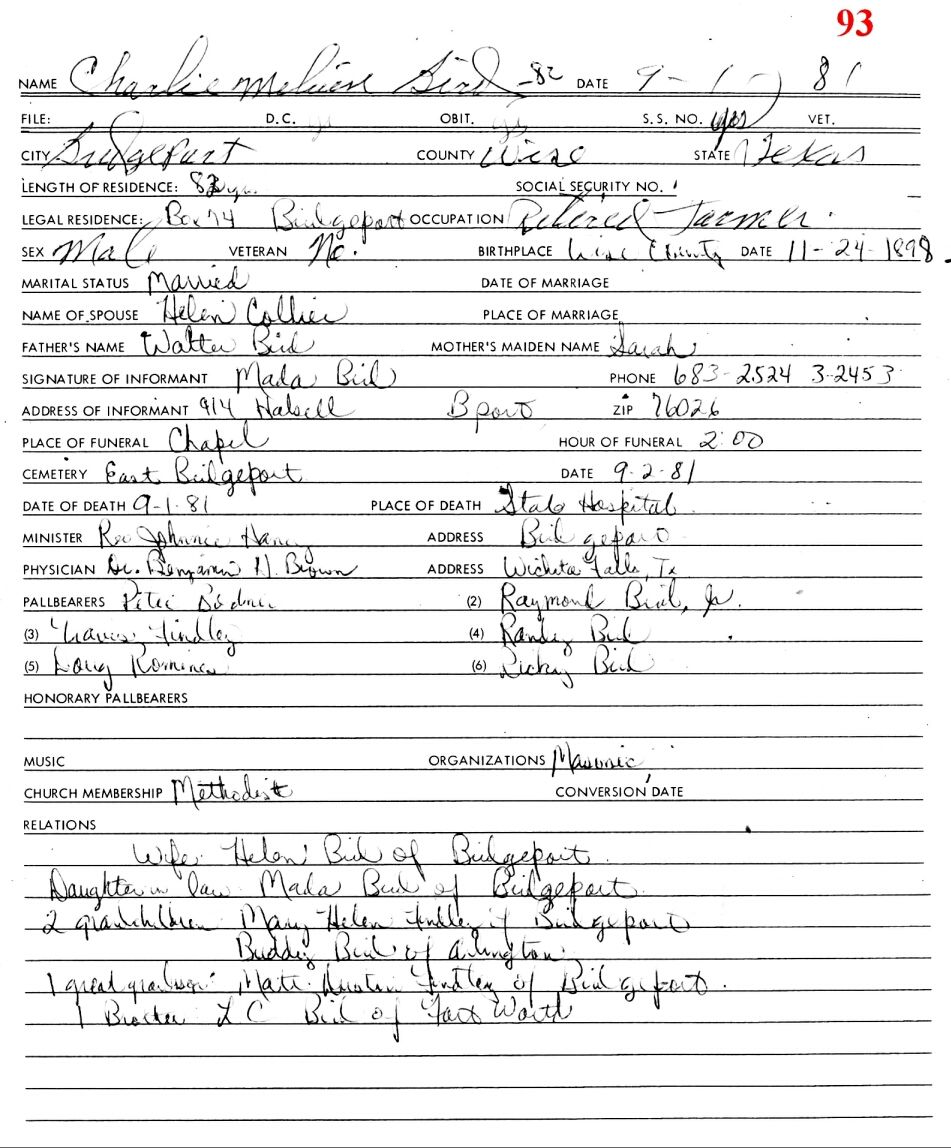 93
NAME Charlie Melvin Bird -82 DATE 9-1-81
FILE: D.C. yes OBIT. yes S.S. NO. yes VET.
CITY Bridgeport COUNTY Wise STATE Texas
LENGTH OF RESIDENCE: 82 yrs. SOCIAL SECURITY NO.
LEGAL RESIDENCE: Box 74 Bridgeport OCCUPATION Retired Farmer
SEX Male VETERAN No. BIRTHPLACE Wise County DATE 11-24-1898
MARITAL STATUS Married DATE OF MARRIAGE
NAME OF SPOUSE Helen Collier PLACE OF MARRIAGE
FATHER'S NAME Walter Bird MOTHER'S MAIDEN NAME Sarah
SIGNATURE OF INFORMANT Mada Bird PHONE 683-2524 3-2453
ADDRESS OF INFORMANT 914 Halsell Bport ZIP 76026
PLACE OF FUNERAL Chapel HOUR OF FUNERAL 2:00
CEMETERY East Bridgeport DATE 9-2-81
DATE OF DEATH 9-1-81 PLACE OF DEATH State Hospital
MINISTER Rev Johnnie ADDRESS Bridgeport
PHYSICIAN Dr. Benjamin N. Brown ADDRESS Wichita Falls, Tx
PALLBEARERS (2) Raymond Bird, Jr.
(3) Travis Findley (4) Randy Bird
(5) Doug Romines (6) Ricky Bird
HONORARY PALLBEARERS
MUSIC ORGANIZATIONS Masonic
CHURCH MEMBERSHIP Methodist CONVERSION DATE
RELATIONS
Wife: Helen Bird of Bridgeport
Daughter in law Mada Bird of Bridgeport
2 grandchildren Mary Helen Findley of Bridgeport
Buddy Bird of Arlington
1 great grandson: Matt Findley of Bridgeport.
1 Brother L C Bird of Fort Worth